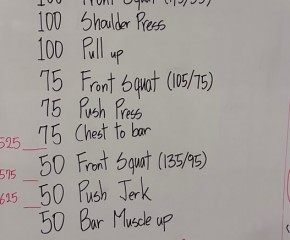 100 Front Squat (75/55)
100 Shoulder Press
100 Pull up
75 Front Squat (105/75)
75 Push Press
525 75 Chest to bar
575 50 Front Squat (135/95)
625 50 Push Jerk
50 Bar Muscle up